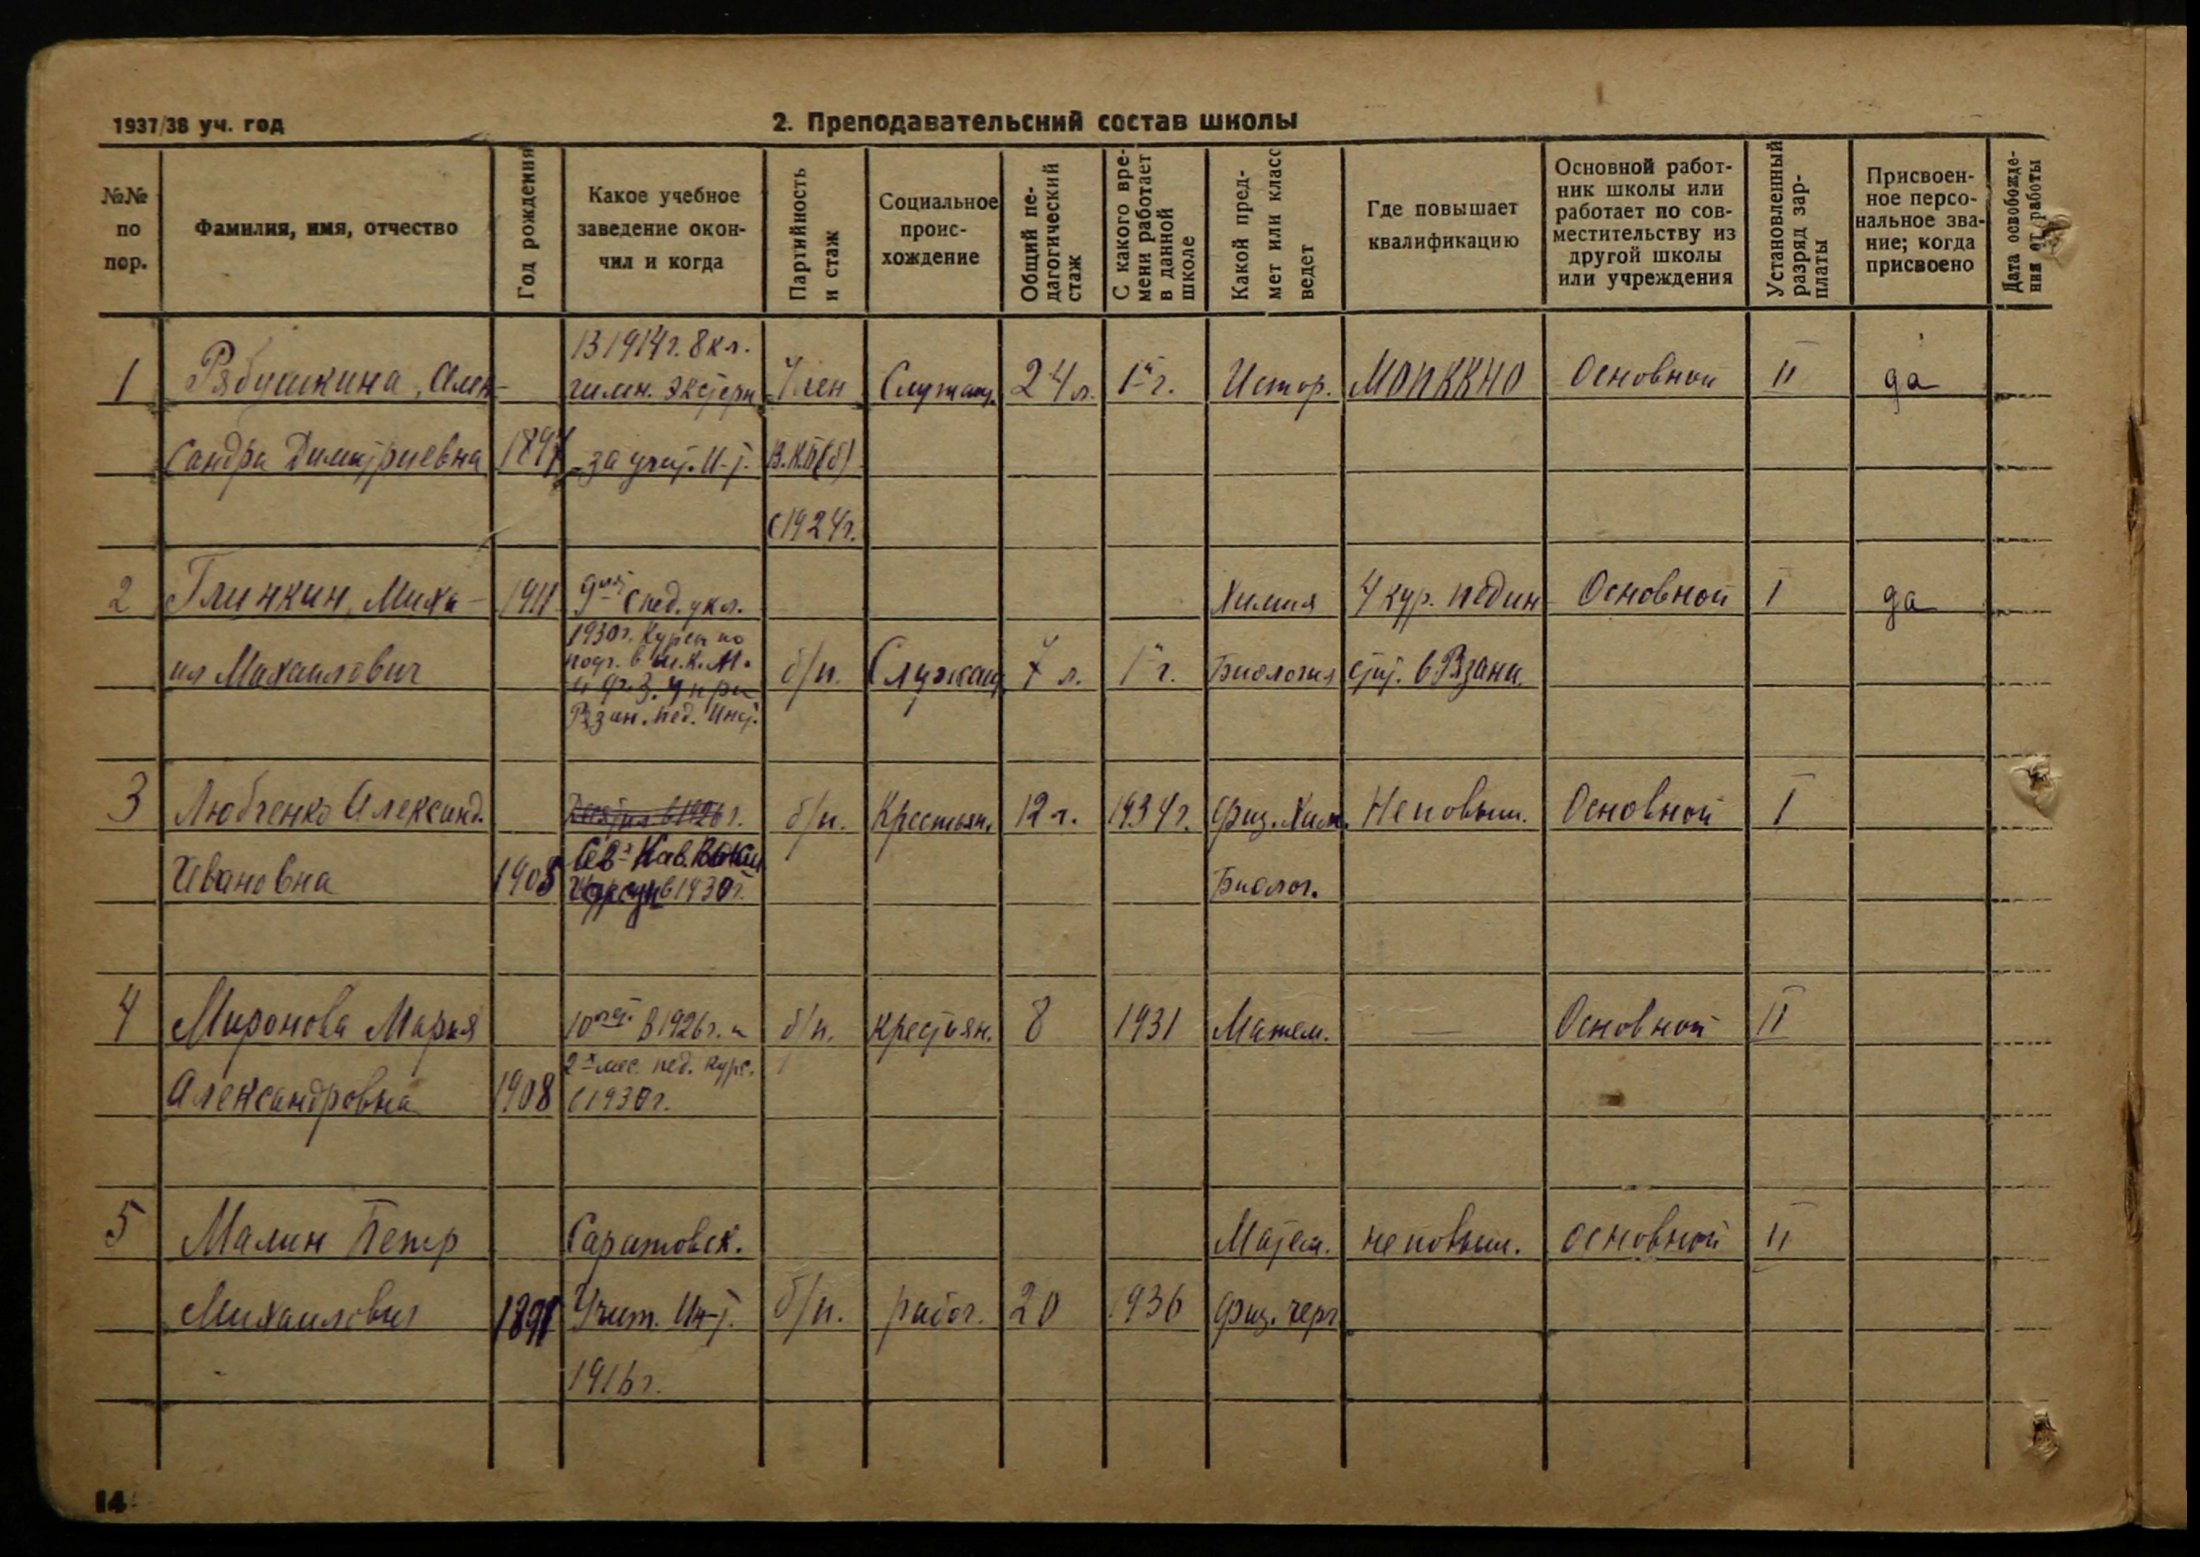 1937/38 уч. год
2. Преподавательский состав школы
№№ по пор.
Фамилия, имя, отчество
Год рождения
Какое учебное заведение окончил и когда
Партийность и стаж
Социальное происхождение
Общий педагогический стаж
С какого времени работает в данной школе
Какой предмет или класс ведет
Где повышает квалификацию
Основной работник школы или работает по совместительству из другой школы или учреждения
Установленный разряд зарплаты
Присвоенное персональное звание; когда присвоено
Дата освобождения от работы
В 1914г. 8 кл.
1 Рябушкина, Алек- гимн. экстерн Член Служащ. 24 л. 1й г. Истор. МОПККНО Основной II да
сандра Димитриевна 1897 за учит. И-т. В.К.П(б)
с 1924г.
2 Глинкин, Миха- 1911 9ти с пед. укл. Химия 4 кур. педин Основной I да
1930г. Курсы по
ил Михаилович подг. в Ш.К.М. б/п. Служащ 7 л. 1й г. Биология ст. в Рязани.
Рязан. пед. Инст.
3 Любченко Александ. б/п. Крестьян. 12 л. 1934г. Физ. Хим. Не повыш. Основной I
Сев-Кав.
Ивановна 1905 в 1930г. Биолог.
4 Миронова Мария 10 в 1926г. и б/п. крестьян. 8 1931 Матем. — Основной II
2х мес. пед. курс.
Александровна 1908 с 1930г.
5 Малин Петр Саратовск. Матем. не повыш. основной II
Михаилович 1891 Учит. Ин-т. б/п. рабоч. 20 1936 физ. черч
1916г.
14